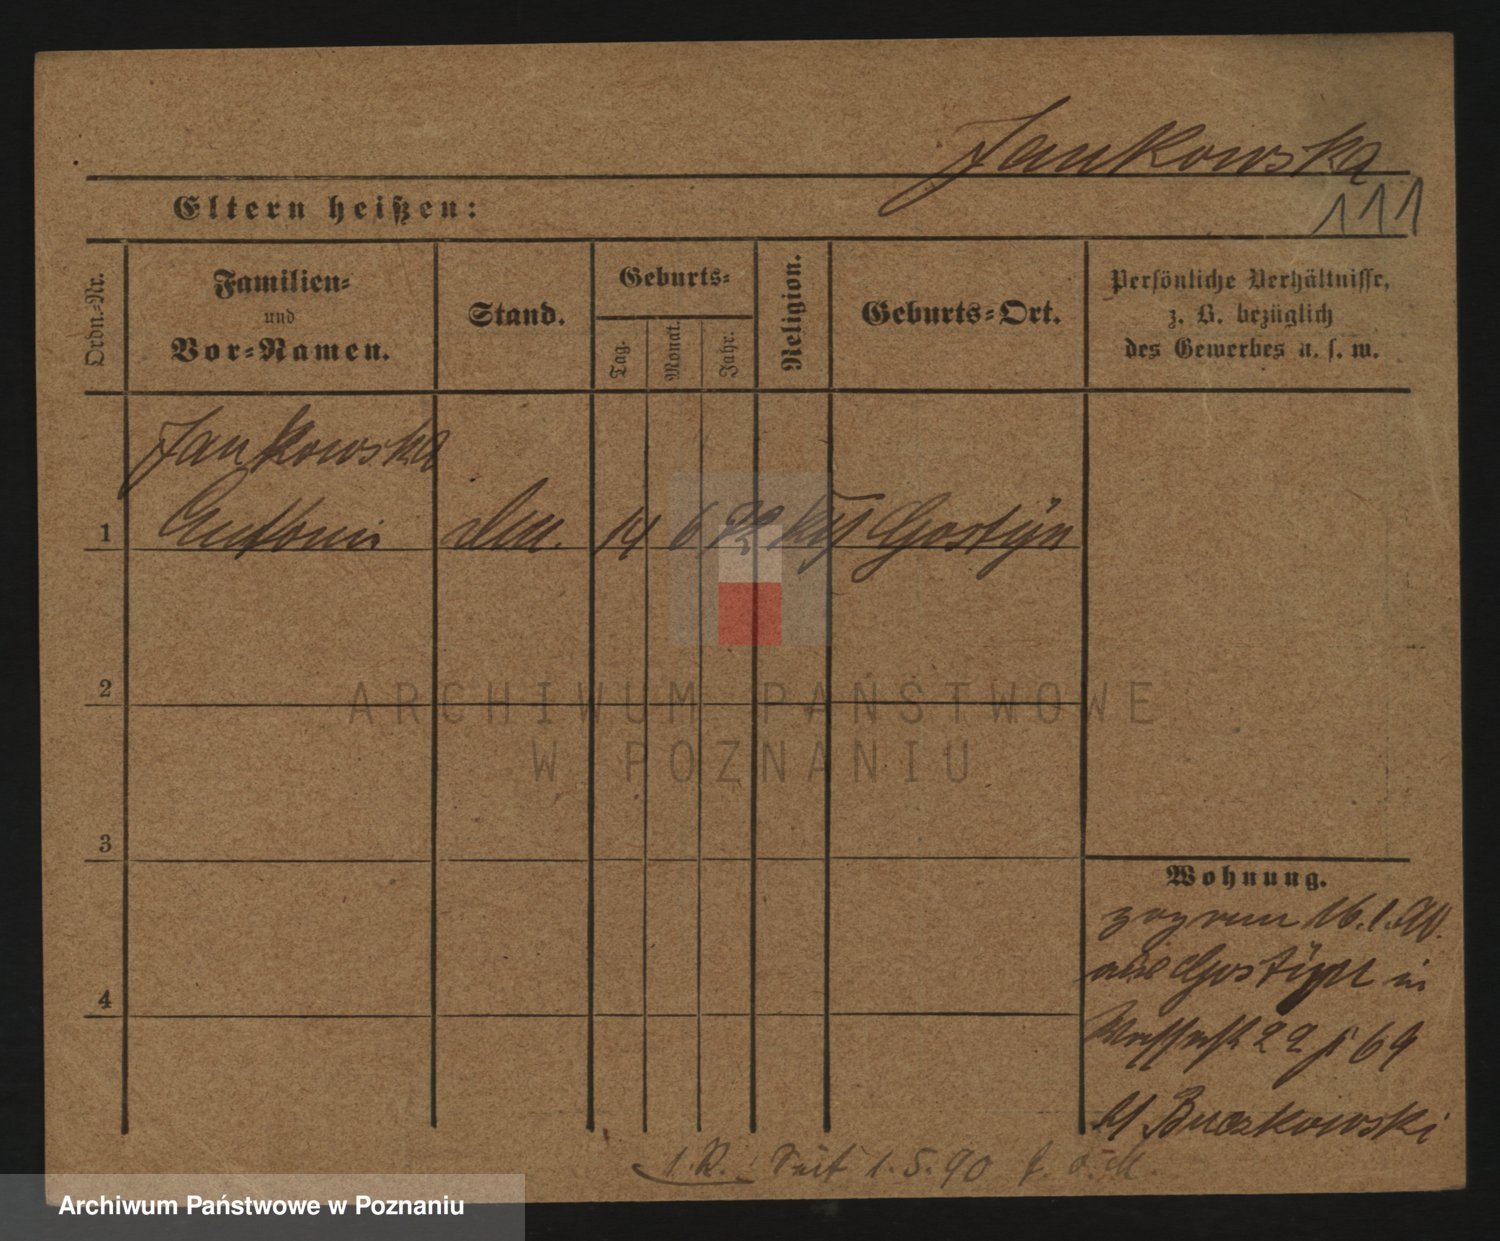 Jankowska
111
Eltern heißen:
Ordn.-Nr.
Familien-
und
Vor-Namen.
Stand.
Geburts-
Tag.
Monat.
Jahr.
Religion.
Geburts-Ort.
Persönliche Verhältnisse,
z. B. bezüglich
des Gewerbes u. s. w.
Jankowska
1 14 6 72 Gostyn
2
3
4
Wohnung.
16.1.90.
aus Gostyn in
22 69
Buczkowski
Seit 1.5.90
ARCHIWUM PAŃSTWOWE
W POZNANIU
Archiwum Państwowe w Poznaniu